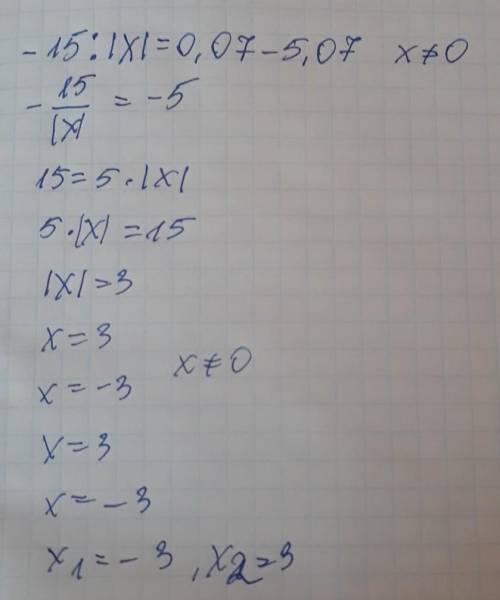 -15:|x|=0,07-5,07 x≠0
-15/|x| = -5
15=5·|x|
5·|x|=15
|x|=3
x=3
x=-3 x≠0
x=3
x=-3
x1=-3, x2=3